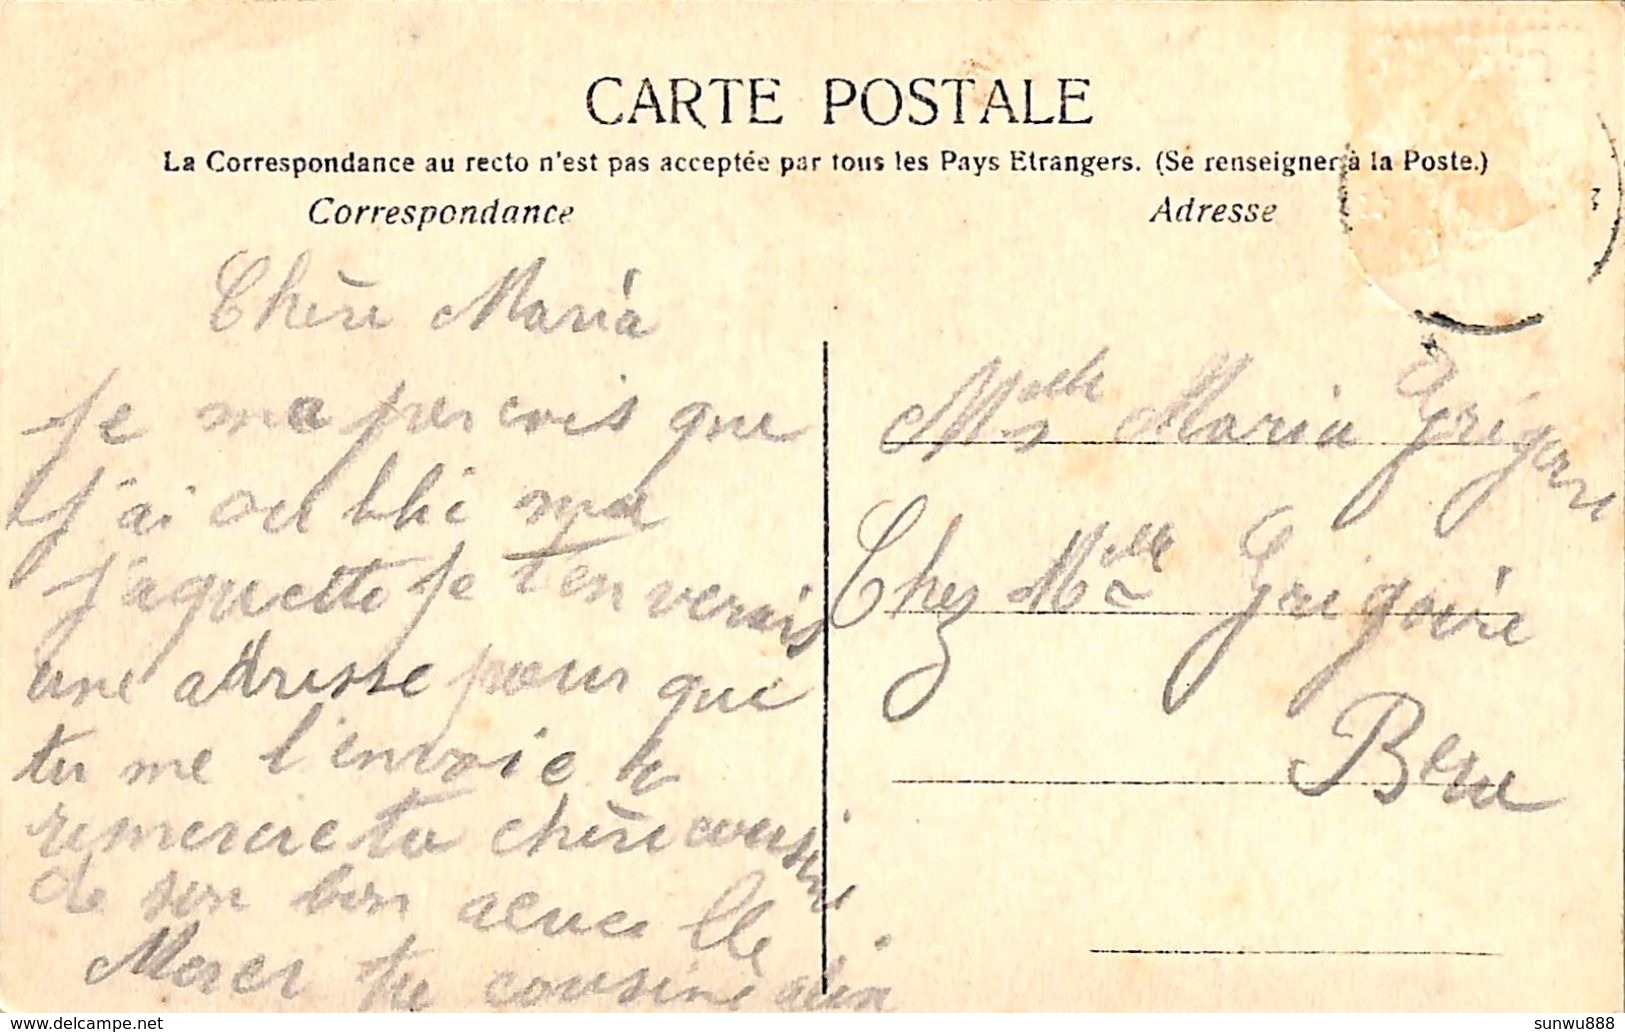 CARTE POSTALE
La Correspondance au recto n'est pas acceptée par tous les Pays Etrangers. (Se renseigner à la Poste.)
Correspondance
Adresse
Chère Maria
Je ma percois que
j'ai oublié ma
jaquette je t'enverais
une adresse pour que
tu me l'envoie
remercie ta chère cousine
de son bon
Merci ta cousine
Melle Maria Grégoire
Chez Melle Grigoire
sunwu888